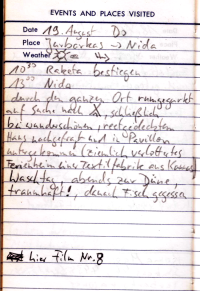 EVENTS AND PLACES VISITED
Date 19. August Do
Place Jurbarkas → Nida
Weather
10³⁰ Raketa bestiegen
13⁰⁰ Nida
durch den ganzen Ort rumgegurkt
auf Suche nach , schließlich
bei wunderschönem, restgedecktem
Haus nachgefragt und in Pavillon
untergekommen (ziemlich verlottertes
Ferienheim einer Textilfabrik aus Kaunas
Waschtag, abends zur Düne,
traumhaft!, danach Fisch gegessen
hier Film Nr. 8